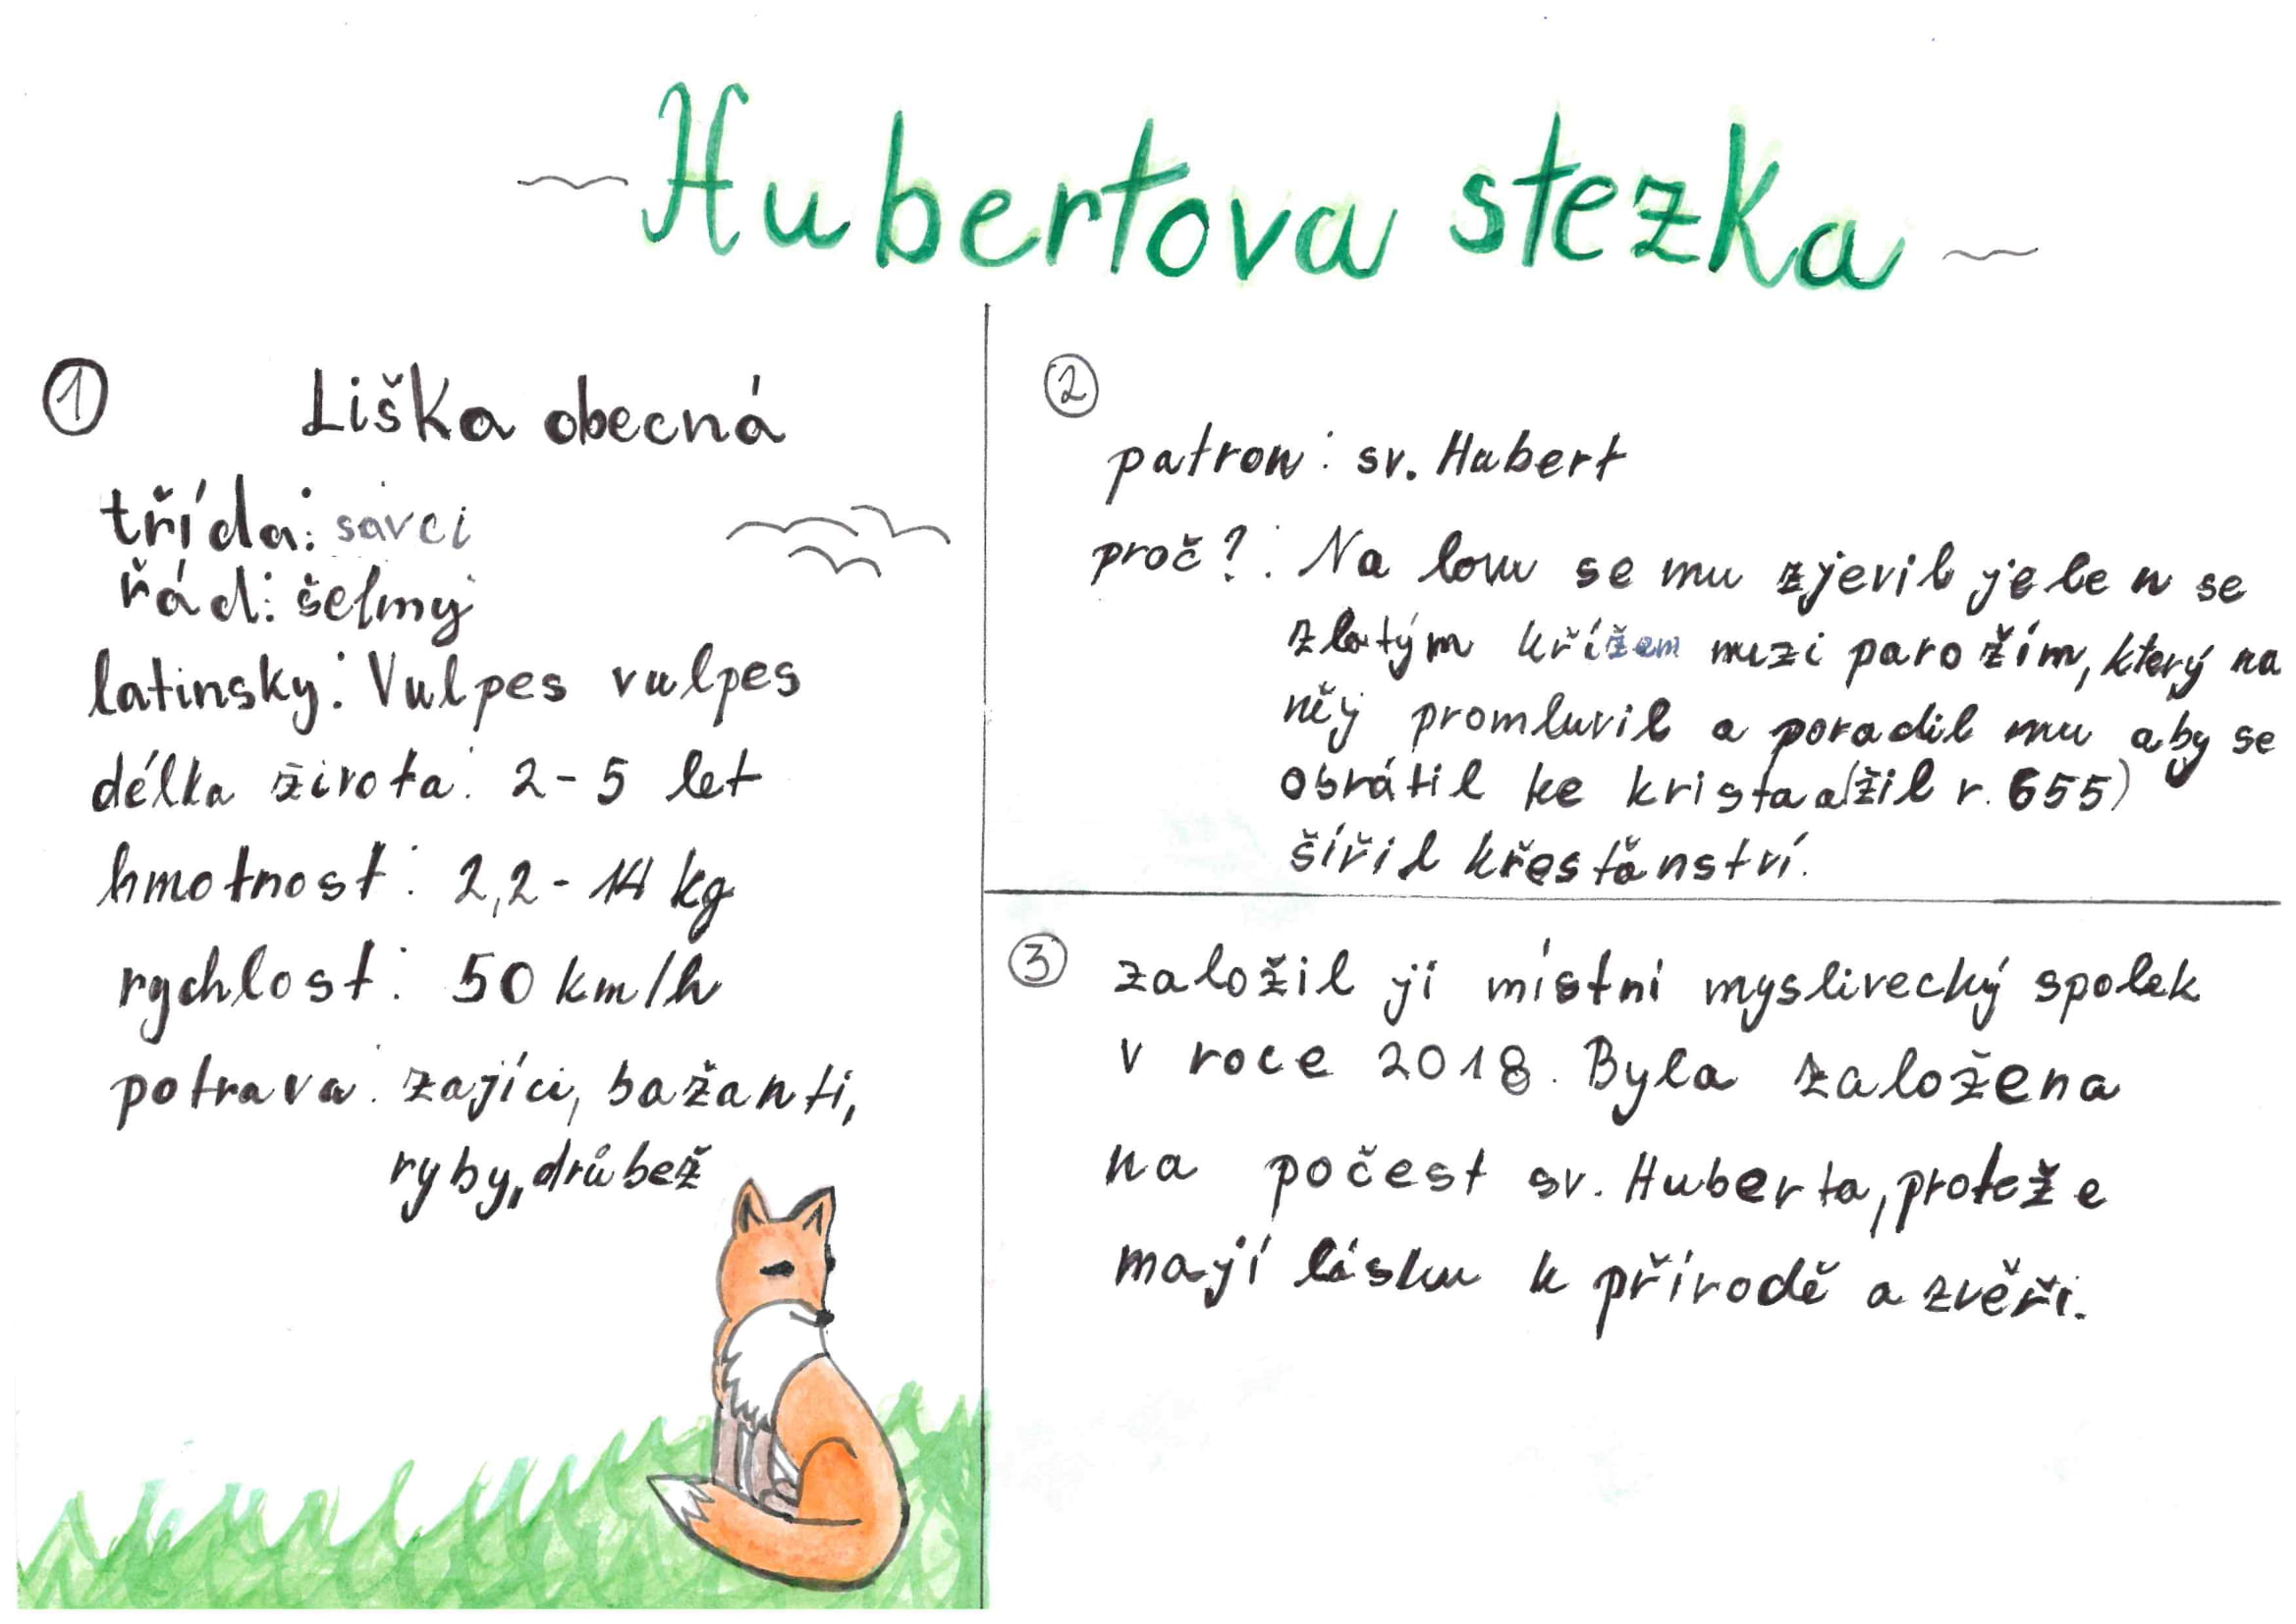 Hubertova stezka
1
Liška obecná
třída: savci
řád: šelmy
latinsky: Vulpes vulpes
délka života: 2-5 let
hmotnost: 2,2-14 kg
rychlost: 50 km/h
potrava: zajíci, bažanti,
ryby, drůbež
2
patron: sv. Hubert
proč?: Na lovu se mu zjevil jelen se
zlatým křížem mezi parožím, který na
něj promluvil a poradil mu aby se
obrátil ke krista a (žil r. 655)
šířil křesťanství.
3 založil ji místní myslivecký spolek
v roce 2018. Byla založena
na počest sv. Huberta, protože
mají lásku k přírodě a zvěři.